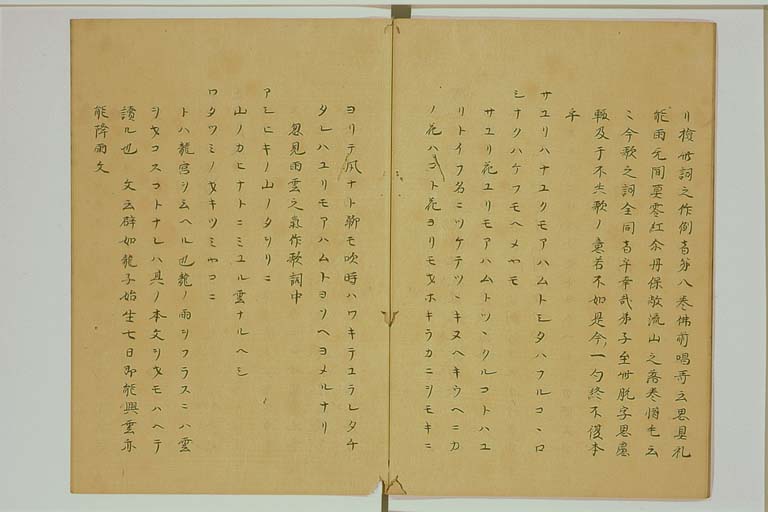 リ検世詞之作例者第八巻佛前唱哥云思具礼
能雨无間莫零紅尓丹保敝流山之落巻惜毛云
〻今歌之詞全同者乎幸哉弟子至世脱字思慮
輙及于不出歌ノ意若不如是今一句終不復本
乎
サユリハナユクモアハムトシタハフルコヽロ
シナクハケフモヘメヤモ
サユリ花ユリモアハムトツヽクルコトハユ
リトイフ名ニツケテツヽキヌヘキウヘニカ
ノ花ハコト花ヨリモオホキラカニシモキニ
ヨリテ風ナト聊モ吹時ハワキテユラレタチ
タレハユリモアハムトヨソヘヨメルナリ
忽見雨雲之氣作歌詞中
アシヒキノ山ノタヲリニ
山ノカヒナトニミユル雲ナルヘシ
ワタツミノオキツミヤコニ
トハ龍宮ヲ云ヘル也龍ノ雨ヲフラスニハ雲
ヲオコスコトナレハ其ノ本文ヲオモハヘテ
讀ル也 文云辟如龍子始生七日即能興雲亦
能降雨文